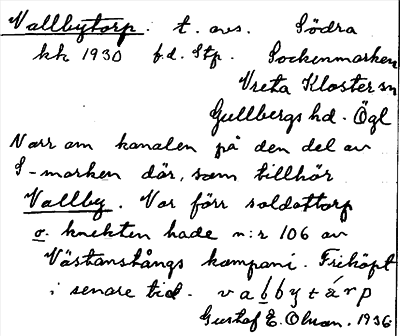 Vallbytorp. t. avs. Södra
kk 1930 f.d. Stp. Sockenmarken
Vreta Kloster sn
Gullbergs hd. Ögl
Norr om kanalen på den del av
S-marken där, som tillhör
Vallby. Var förr soldattorp
o. knekten hade n:r 106 av
Västanstångs kompani. Friköpt
i senare tid. vabbytårp
Gustaf E. Olson. 1936